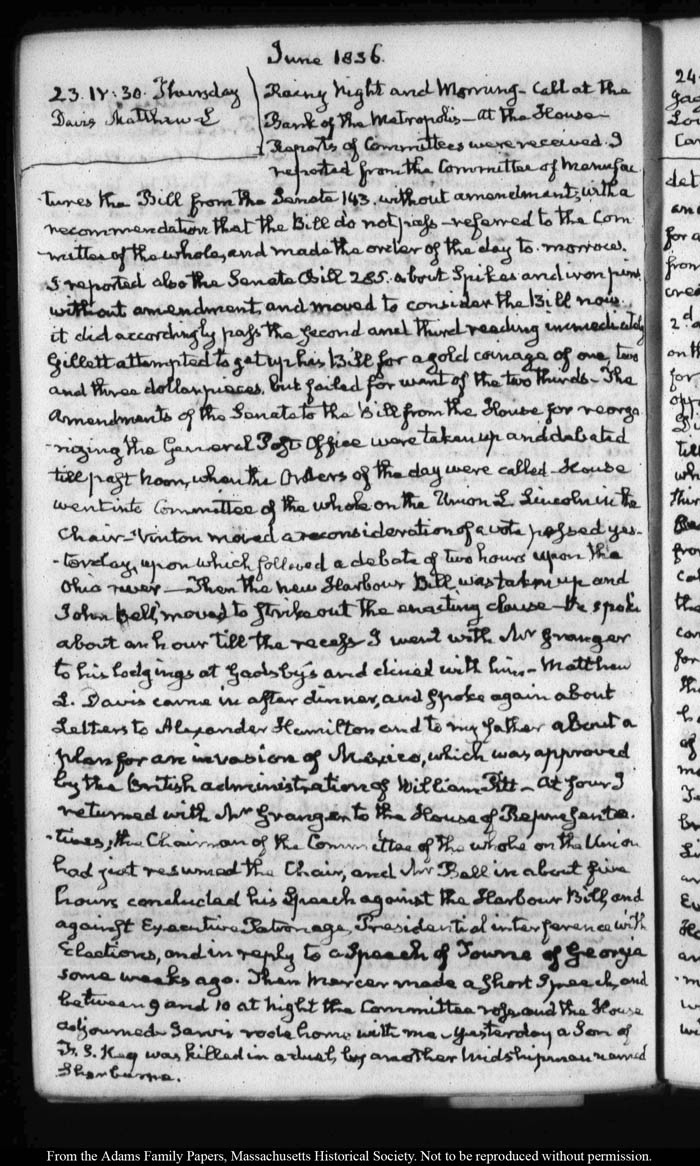 June 1836.
23. IV: 30. Thursday
Davis Matthew L
Rainy Night and Morning - Call at the
Bank of the Metropolis - At the House -
Reports of Committees were received. I
reported from the Committee of Manufac
-tures the Bill from the Senate 143. without amendment, with a
recommendation that the Bill do not pass - referred to the Com
-mittee of the whole, and made the order of the day to-morrow.
I reported also the Senate Bill 285. about Spikes and iron pins
without amendment, and moved to consider the Bill now.
it did accordingly pass the second and third reading immediately
Gillett attempted to get up his Bill for a gold coinage of one, two
and three dollar pieces, but failed for want of the two thirds - The
Amendments of the Senate to the Bill from the House for reorga
-nizing the General Post Office were taken up and debated
till past Noon, when the Orders of the day were called - House
went into Committee of the whole on the Union L. Lincoln in the
Chair - Vinton moved a reconsideration of a vote passed yes-
-terday, upon which followed a debate of two hours upon the
Ohio river - Then the new Harbour Bill was taken up and
John Bell moved to strike out the enacting clause - He spoke
about an hour till the recess I went with Mr Granger
to his lodgings at Gadsby's and dined with him - Matthew
L. Davis came in after dinner, and spoke again about
Letters to Alexander Hamilton and to my father about a
plan for an invasion of Mexico, which was approved
by the British administration of William Pitt - At four I
returned with Mr Granger to the House of Representa-
-tives; the Chairman of the Committee of the whole on the Union
had just resumed the Chair, and Mr Bell in about five
hours concluded his Speach against the Harbour Bill, and
against Executive Patronage, Presidential interference with
Elections, and in reply to a Speech of Towns of Georgia
some weeks ago. Then Mercer made a short Speech, and
between 9 and 10 at Night the Committee rose and the House
adjourned. Jarvis rode home with me - Yesterday a Son of
F. S. Key was killed in a duel, by another Midshipman named
Sherburne.
24.
From the Adams Family Papers, Massachusetts Historical Society. Not to be reproduced without permission.